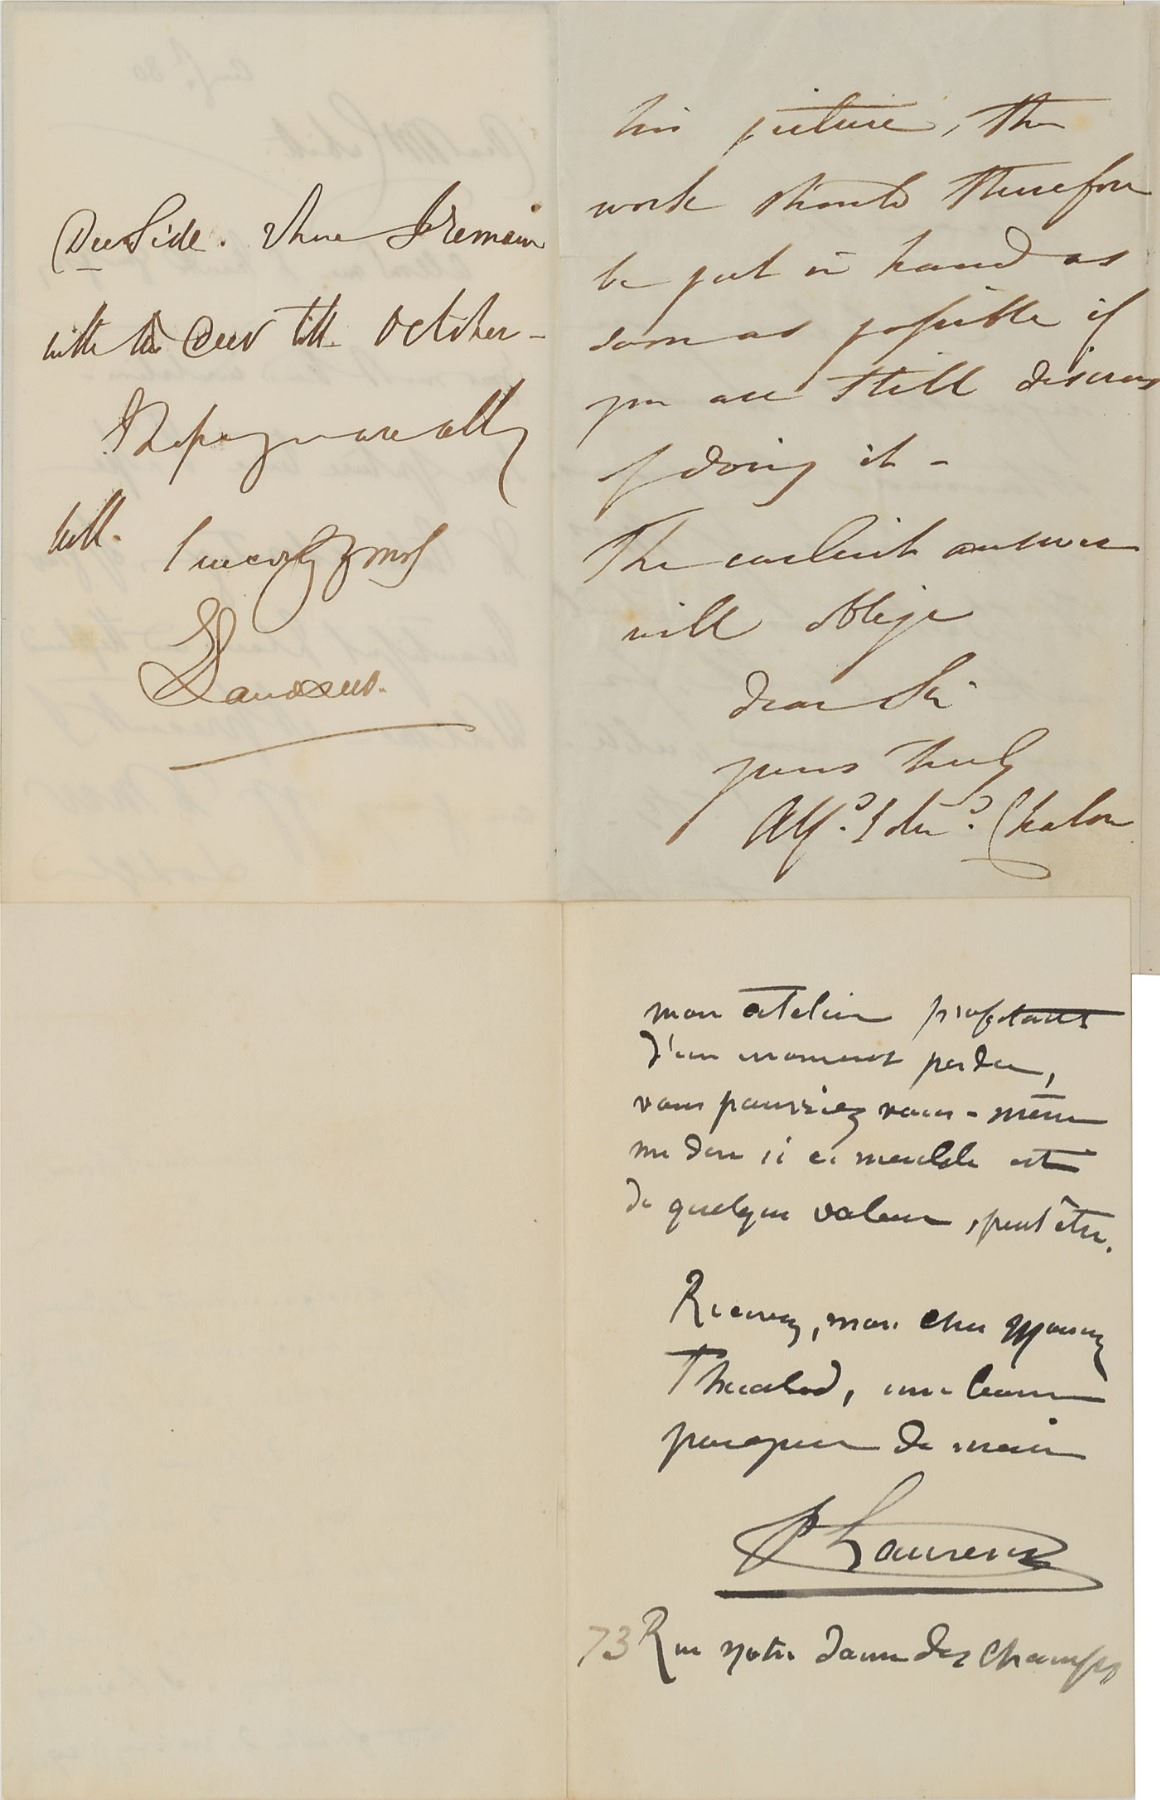 Dee Side. where I remain
with the Deer till October -
I hope you are all
well. Sincerely yours
E Landseer.
his picture, the
work should therefore
be put in hand as
soon as possible if
you are still desirous
of doing it -
The earliest answer
will oblige
Dear Sir
yours truly
Alfd. Edwd. Chalon
mon atelier profitant
d'un moment perdu,
vous pourriez vous-même
me dire si ce meuble est
de quelque valeur, peut être.
Recevez, mon cher Monsieur
une bonne
poignée de main
Laurens
73 Rue notre dame des champs